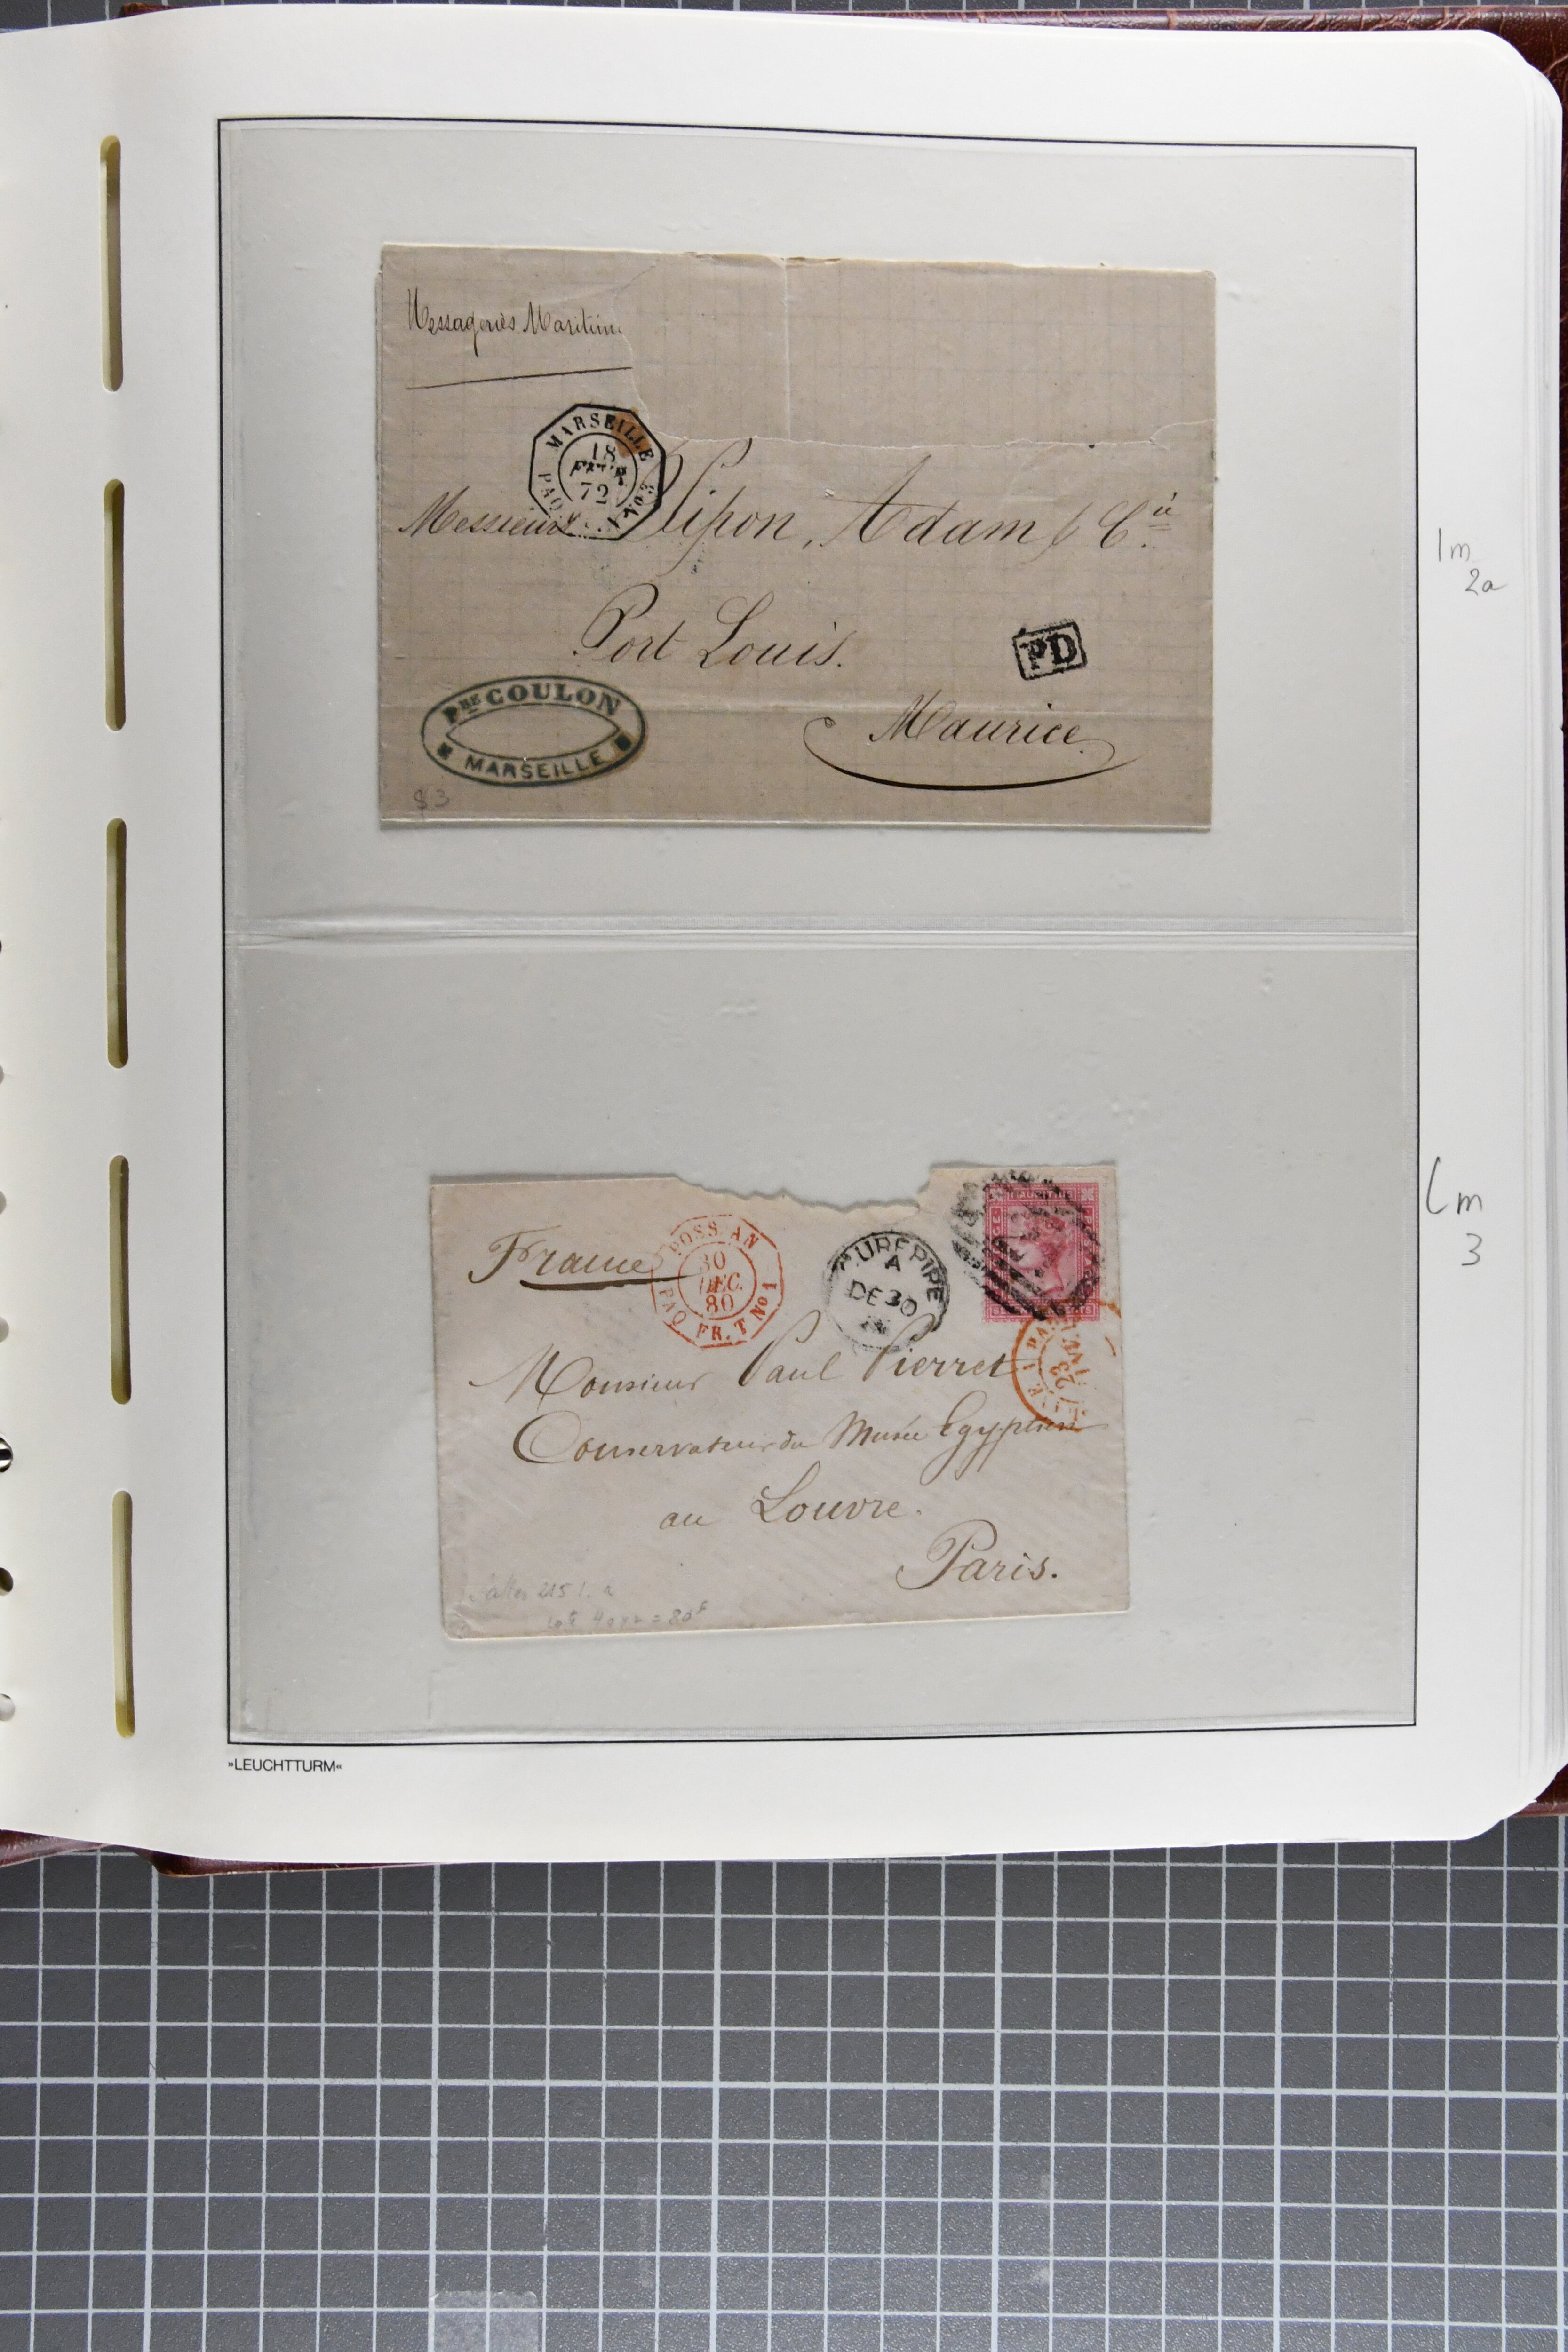 Messageries Maritim.
MARSEILLE
18
FEVR
72
PAQ
No 3
Messieurs Pipon, Adam & Cie
Port Louis.
PD
Maurice
PRE COULON
MARSEILLE
$3
1m
2a
France
POSS. AN
30
DEC.
80
PAQ FR. T No 1
CUREPIPE
A
DE 30
Monsieur Paul Pierret
23
Conservateur du Musée Egyptien
au Louvre.
Paris.
215
= 80F
Lm
3
»LEUCHTTURM«